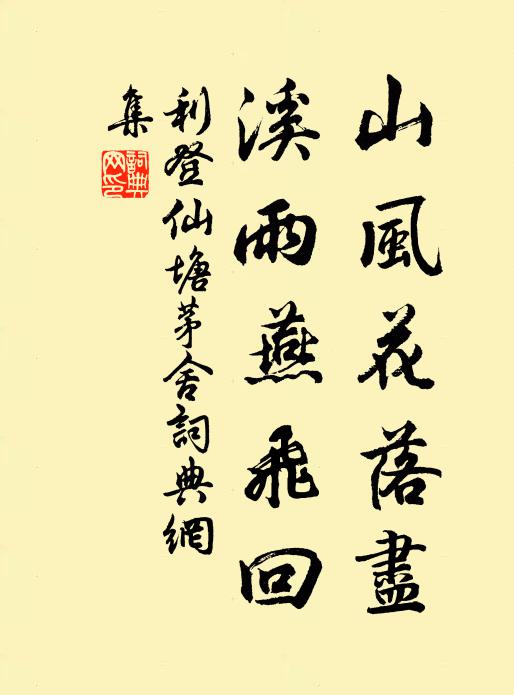 山風花落盡
溪雨燕飛回
利登仙塘茅舍詞典網
集
詞典網印